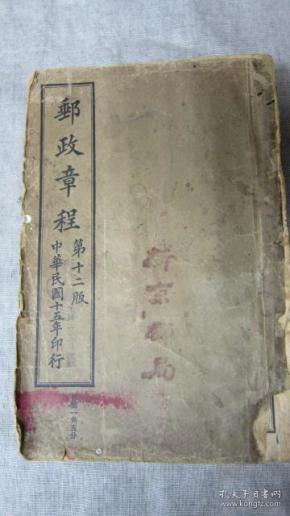 郵政章程
第十二版
中華民國十五年印行
孔夫子旧书网